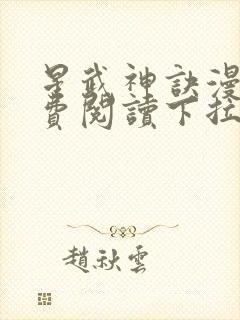 星武神訣漫
費閱讀下拉
趙秋雲